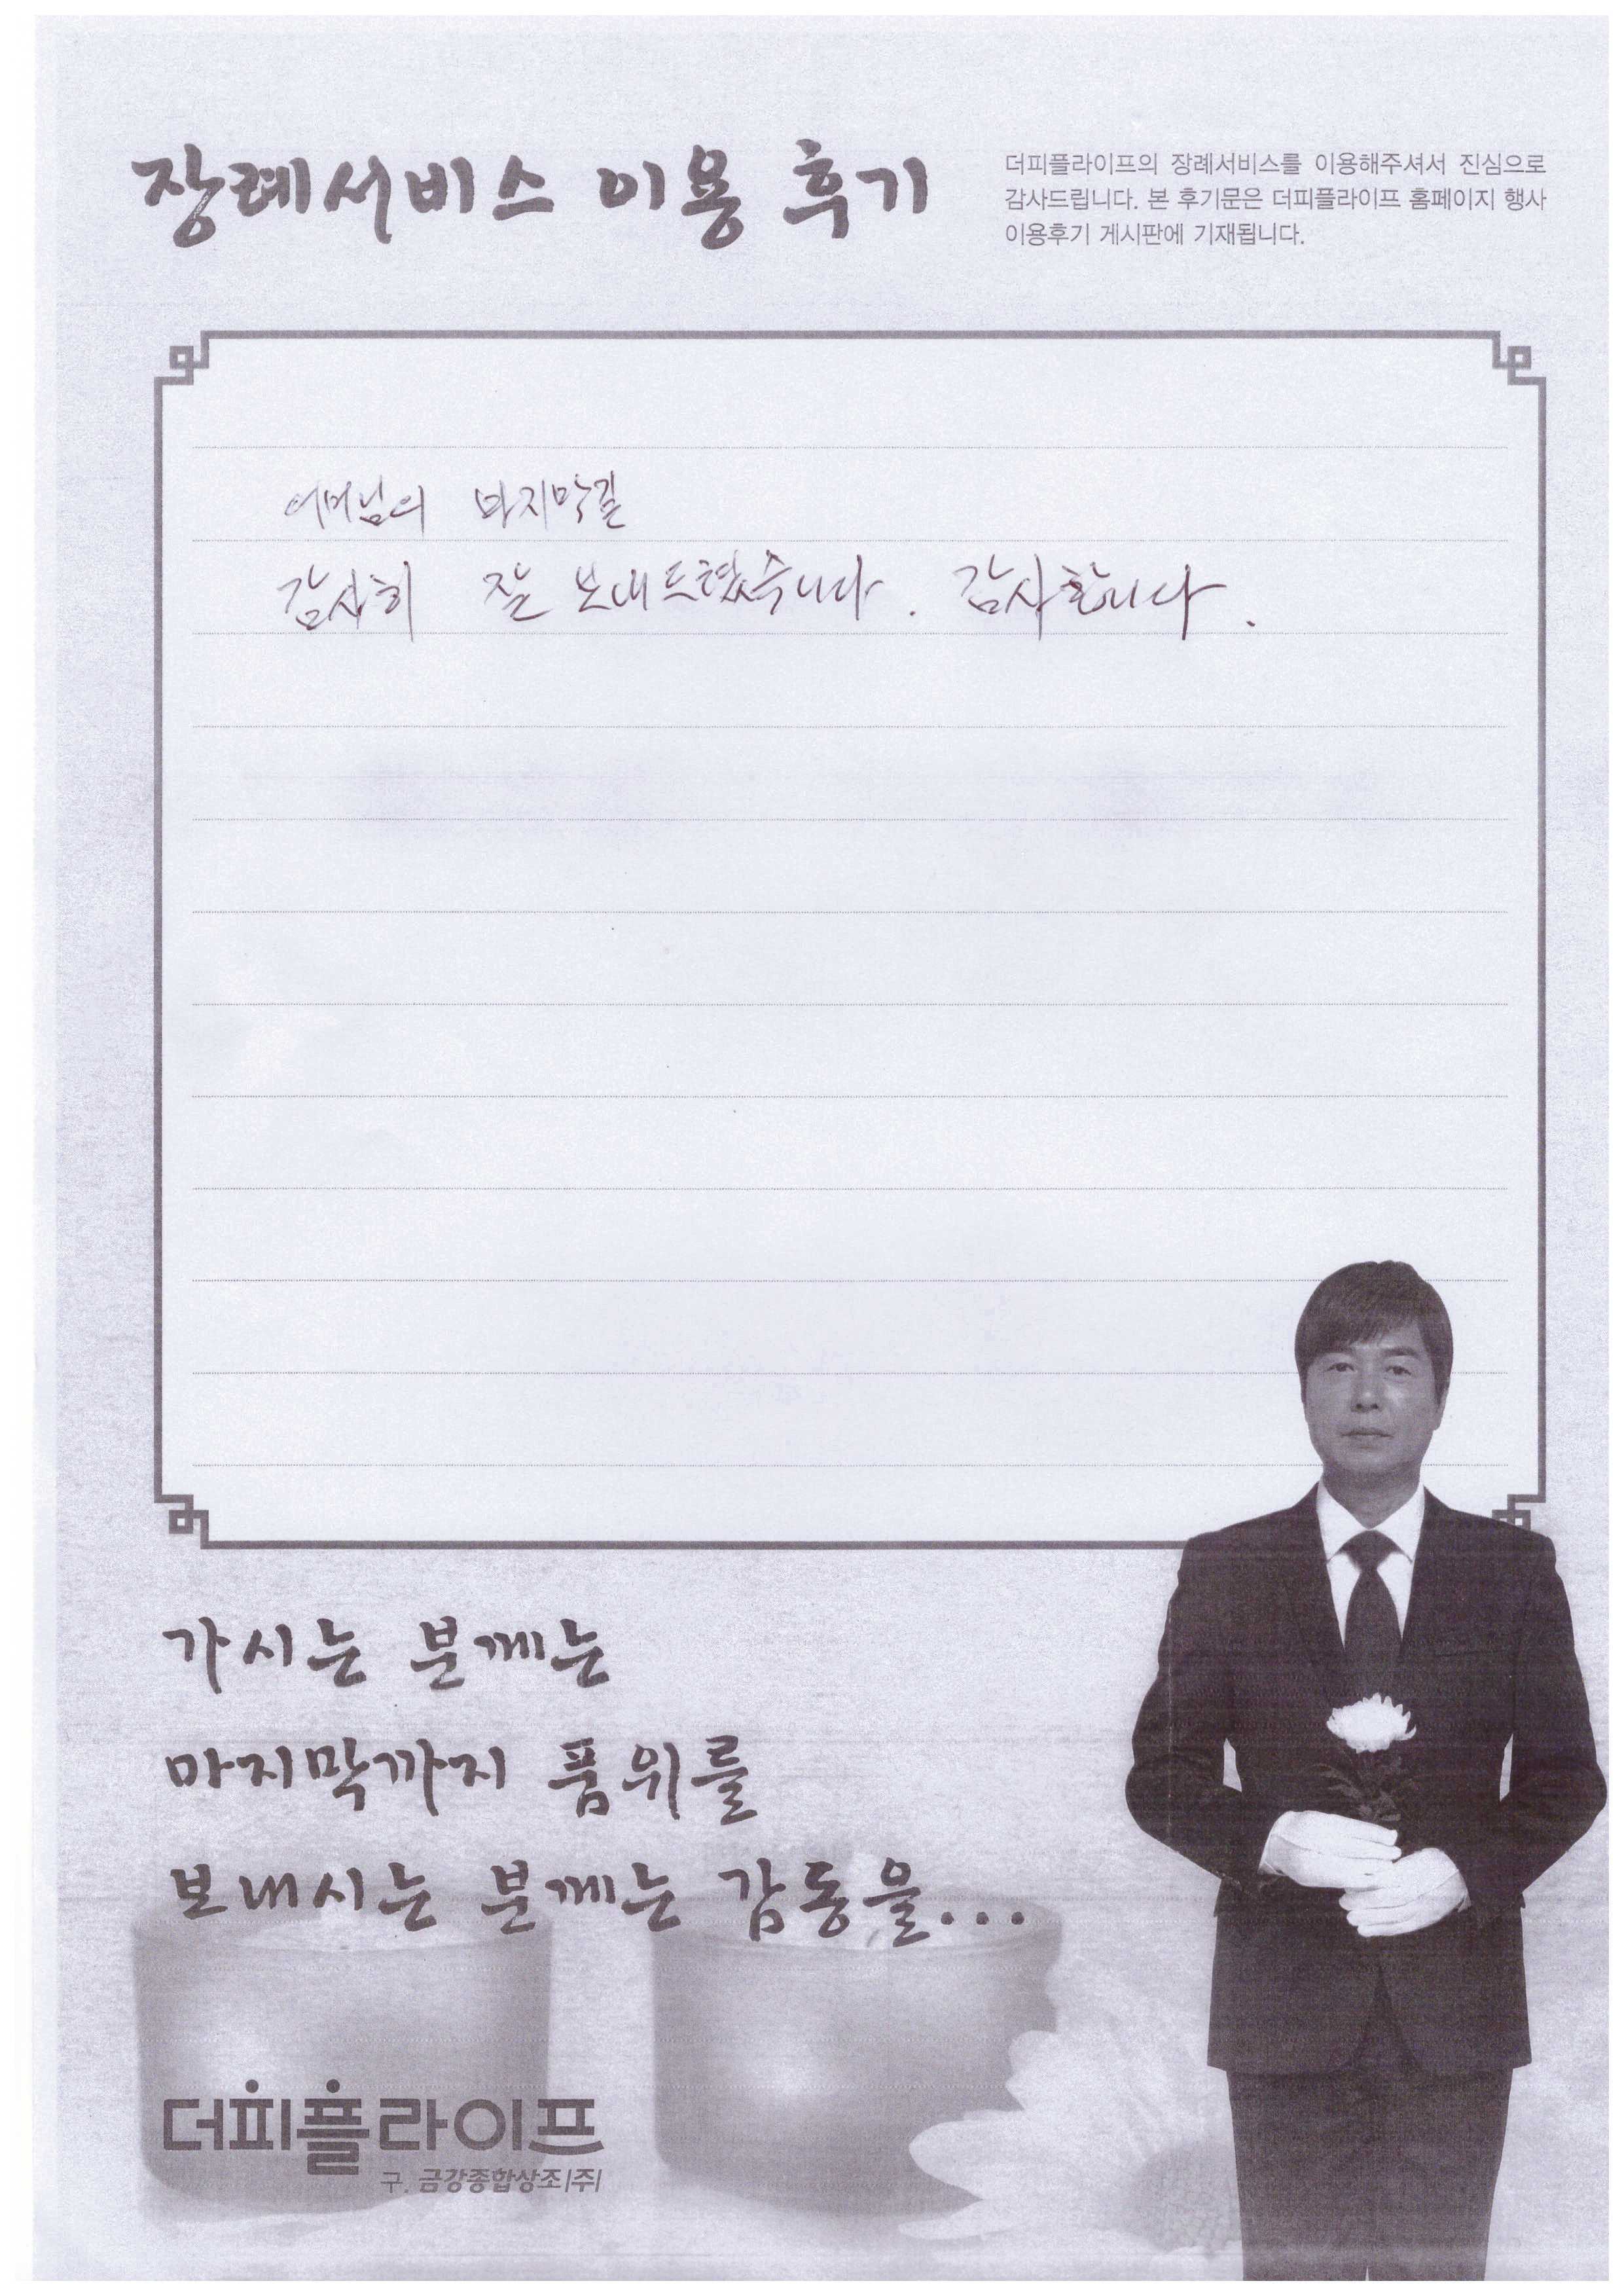 장례서비스 이용 후기
더피플라이프의 장례서비스를 이용해주셔서 진심으로
감사드립니다. 본 후기문은 더피플라이프 홈페이지 행사
이용후기 게시판에 기재됩니다.
어머님의 마지막길
감사히 잘 보내드렸습니다. 감사합니다.
가시는 분께는
마지막까지 품위를
보내시는 분께는 감동을...
더피플라이프
구. 금강종합상조|주|